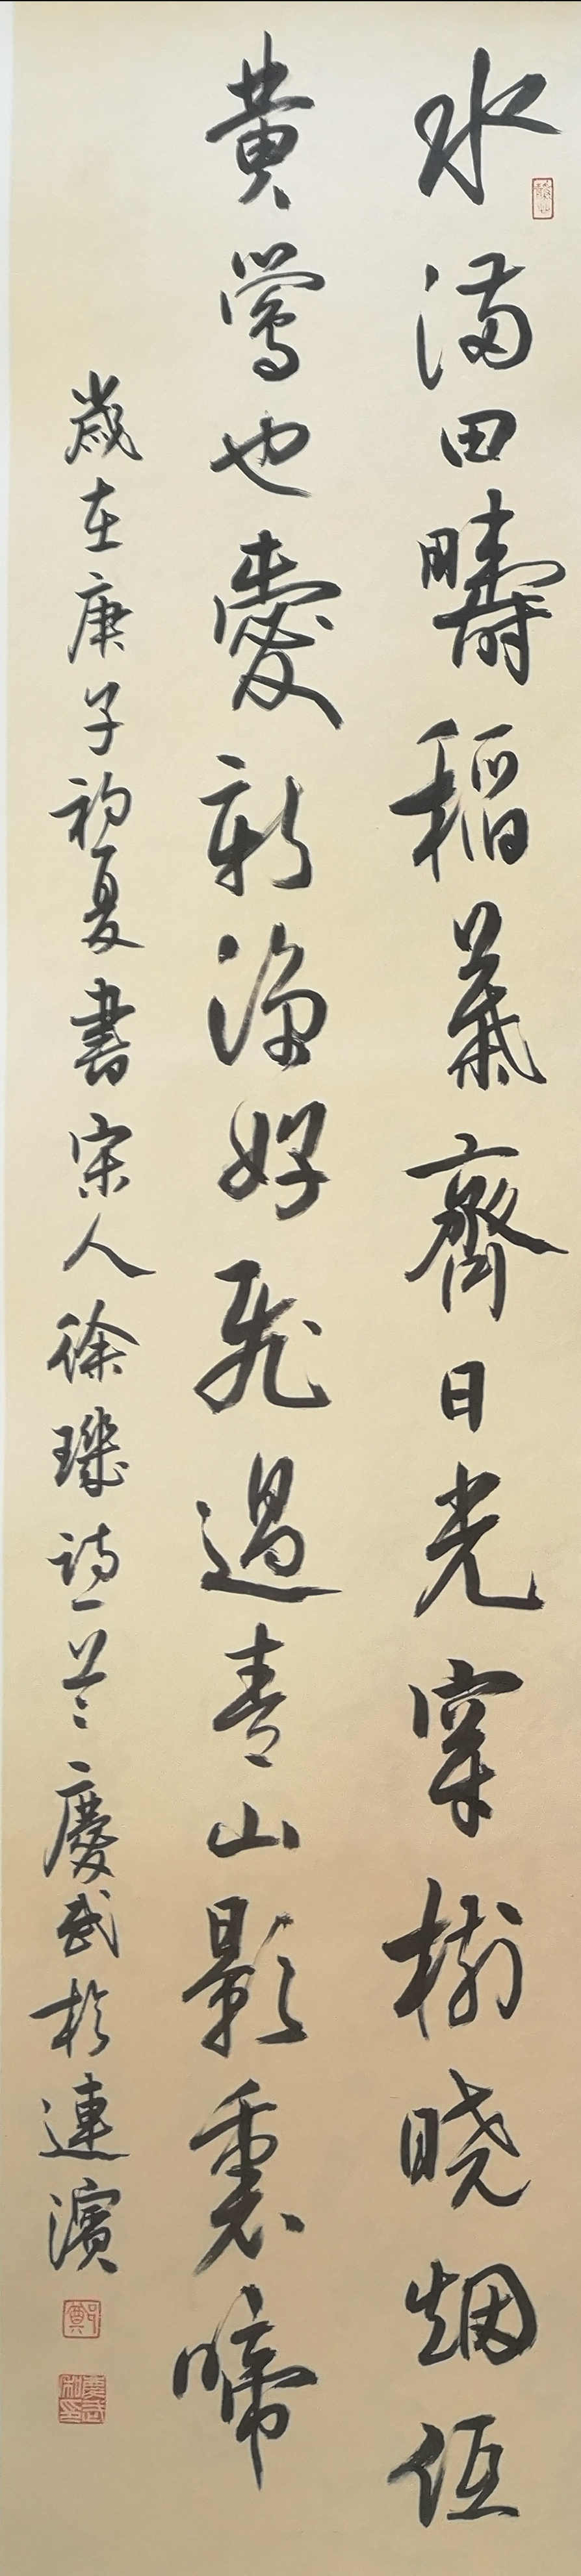 水滿田疇稻葉齊日光穿樹晓烟低
黃鶯也愛新涼好飛過青山影裏啼
歲在庚子初夏書宋人徐璣詩一首慶武於連濱
慶武私印